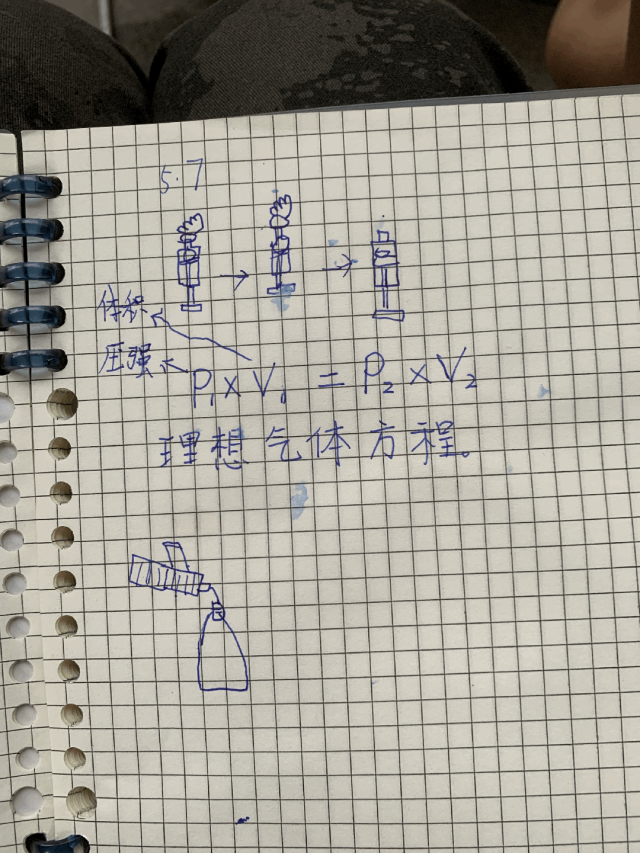 5.7
体积
压强
P₁ x V₁ = P₂ x V₂
理想气体方程。